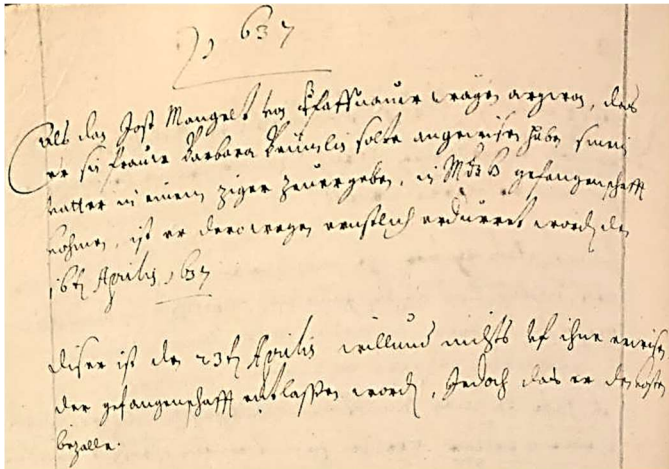 1637
Als der Jost Mangelt von Pfaffnauw wägen argwon, das
er sin frauw Barbara Brünlin solte angewisen haben sinem
vatter in einem ziger zeuergeben, in MGH gefangenschafft
kohmen, ist er derowegen ernstlich erdürret worden den
16ten Aprilis 1637
Diser ist den 23ten Aprilis willund nichts vf ihne erwisen
der gefangenschafft entlassen worden, Jedoch das er den costen
bezalle.